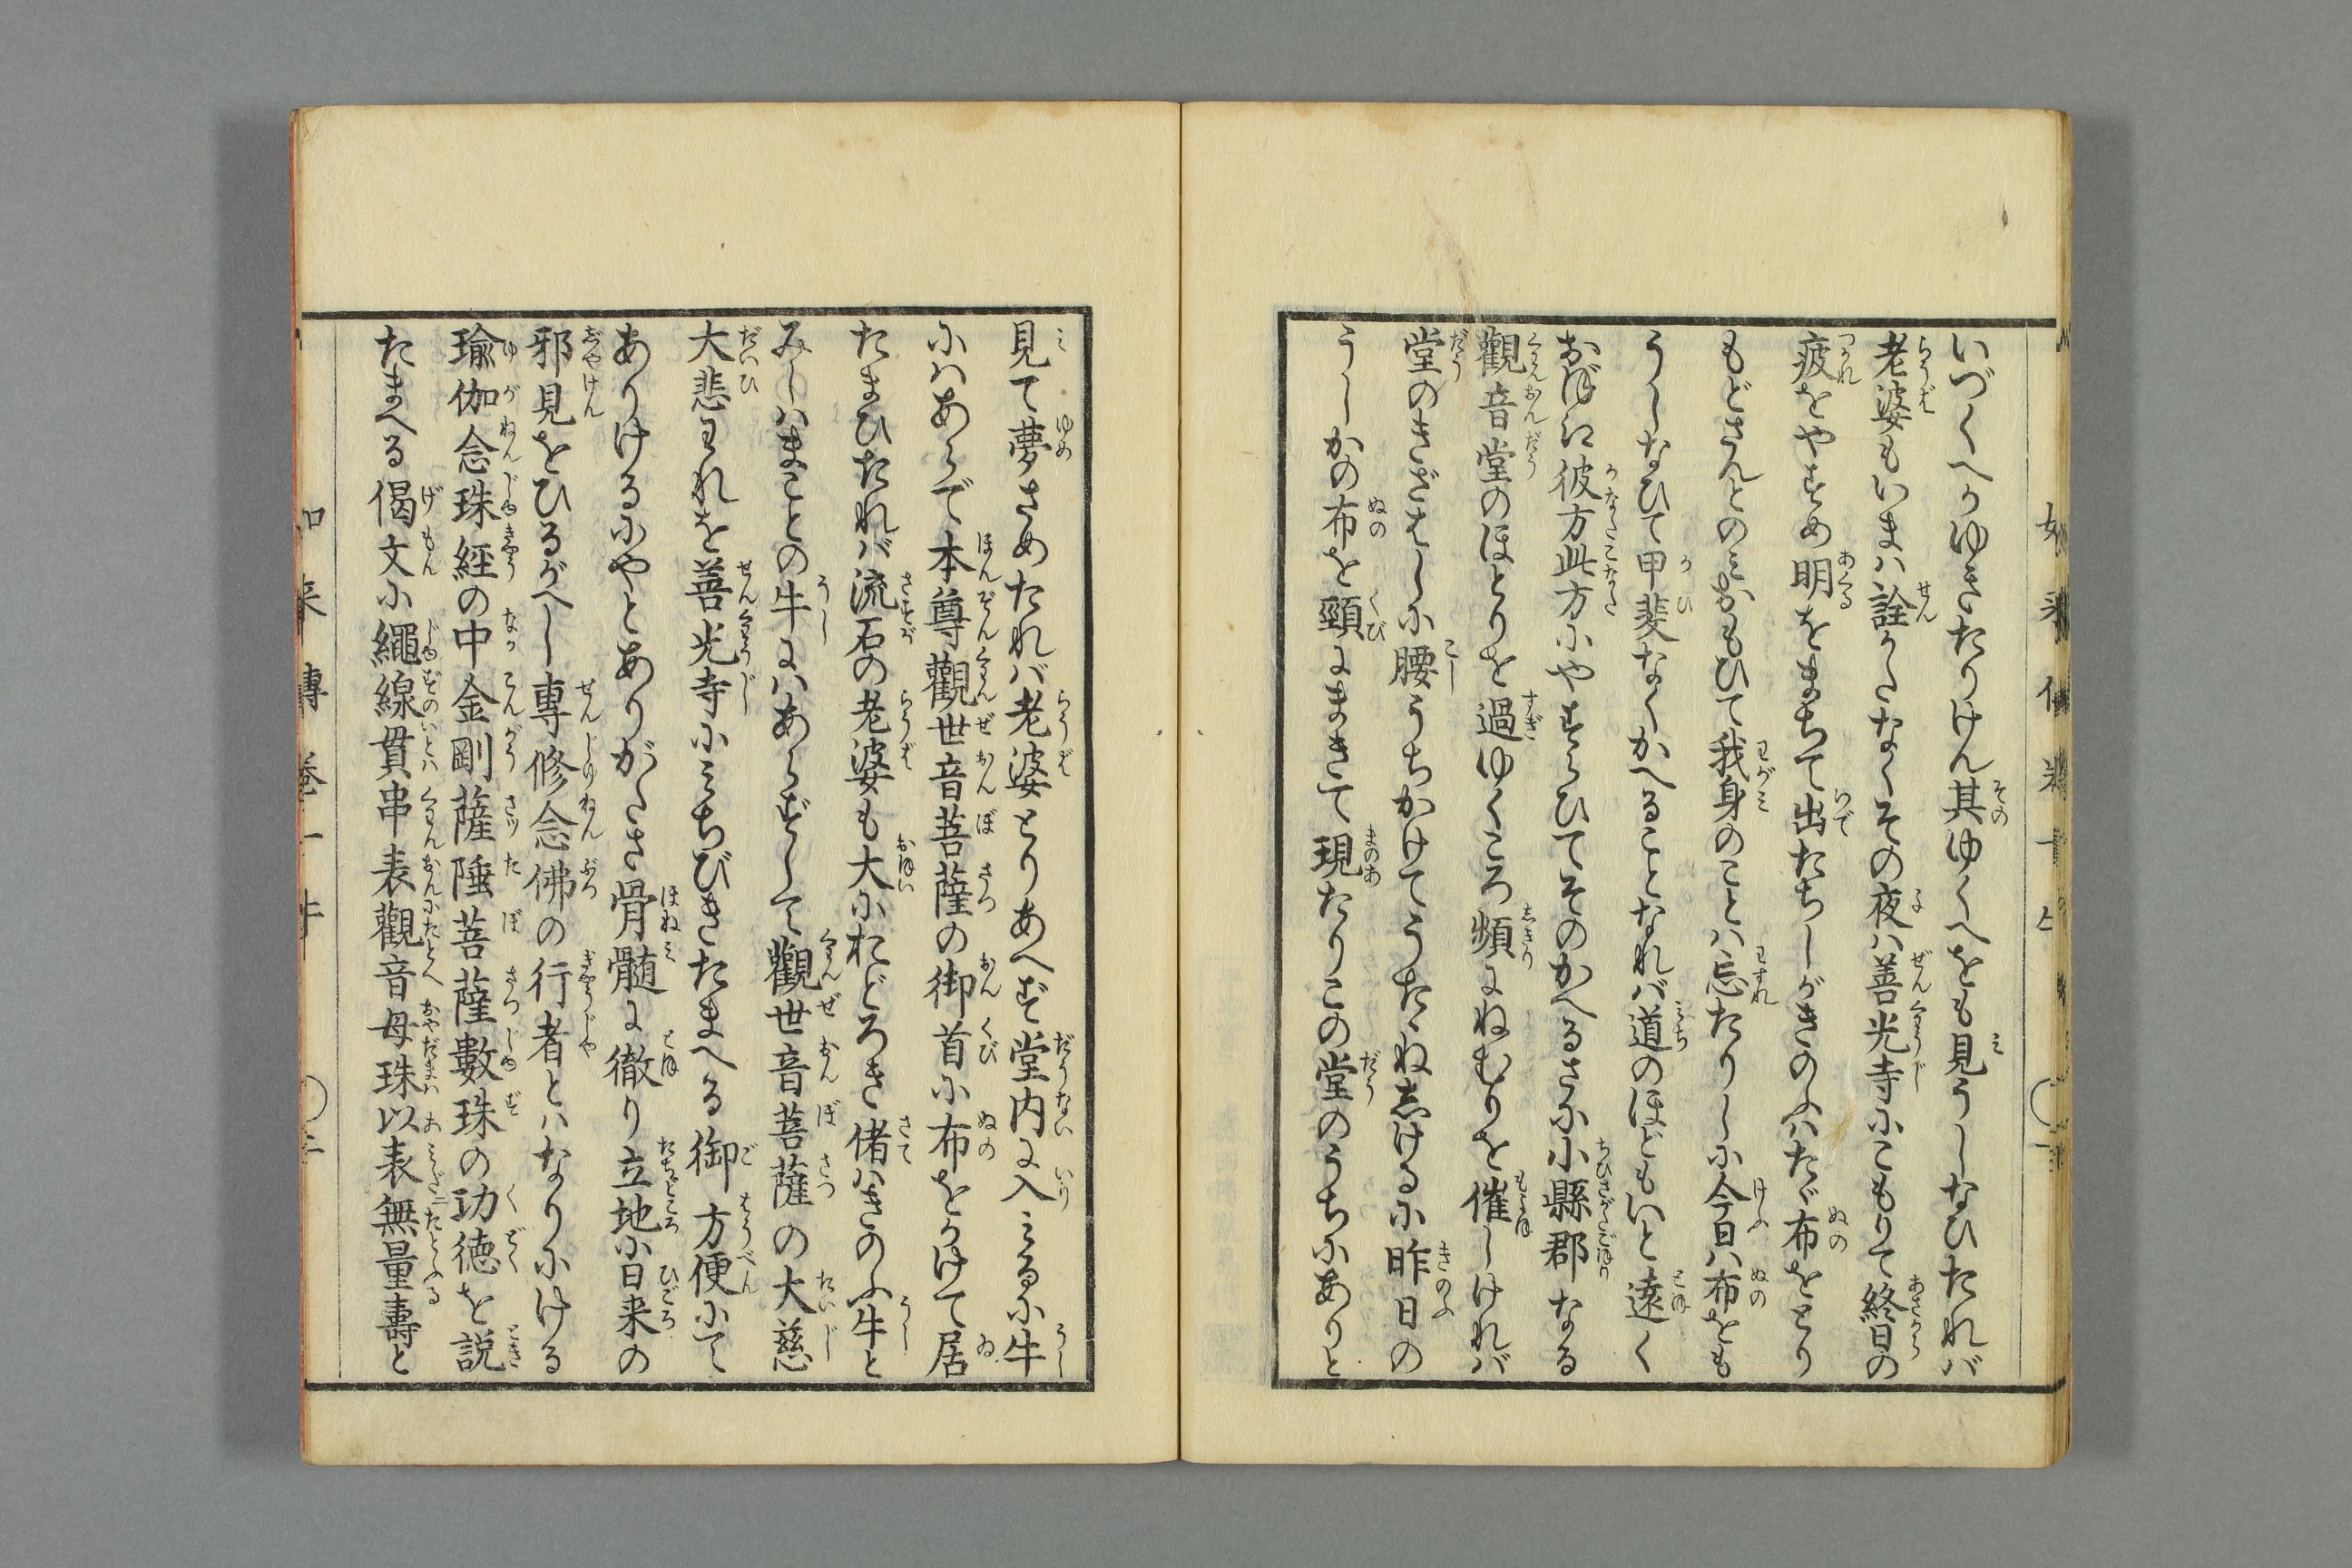 いづくへかゆきたりけん其ゆくへをも見うしなひたれバ
老婆もいまハ詮かたなくその夜ハ善光寺にこもりて終日の
疲をやすめ明をまちて出たちしがきのふハたゞ布をとり
もどさんとのミおもひて我身のことハ忘たりしに今日ハ布をも
うしなひて甲斐なくかへることなれバ道のほどもいと遠く
おぼえ彼方此方にやすらひてそのかへるさに小縣郡なる
觀音堂のほとりを過ゆくころ頻にねむりを催しけれバ
堂のきざはしに腰うちかけてうたゝね志ける小昨日の
うしかの布を頸にまきて現たりこの堂のうちにありと
見て夢さめたれバ老婆とりあへず堂内に入ミる小牛
にハあらで本尊觀世音菩薩の御首に布をかけて居
たまひたれバ流石の老婆も大におどろき偖ハきのふ牛と
みしハまことの牛にハあらずして觀世音菩薩の大慈
大悲われを善光寺にミちびきたまへる御方便にて
ありけるにやとありがたさ骨髄に徹り立地に日来の
邪見をひるがへし專修念佛の行者とハなりにける
瑜伽念珠經の中金剛薩埵菩薩數珠の功徳を説
たまへる偈文に繩線貫串表觀音母珠以表無量壽と